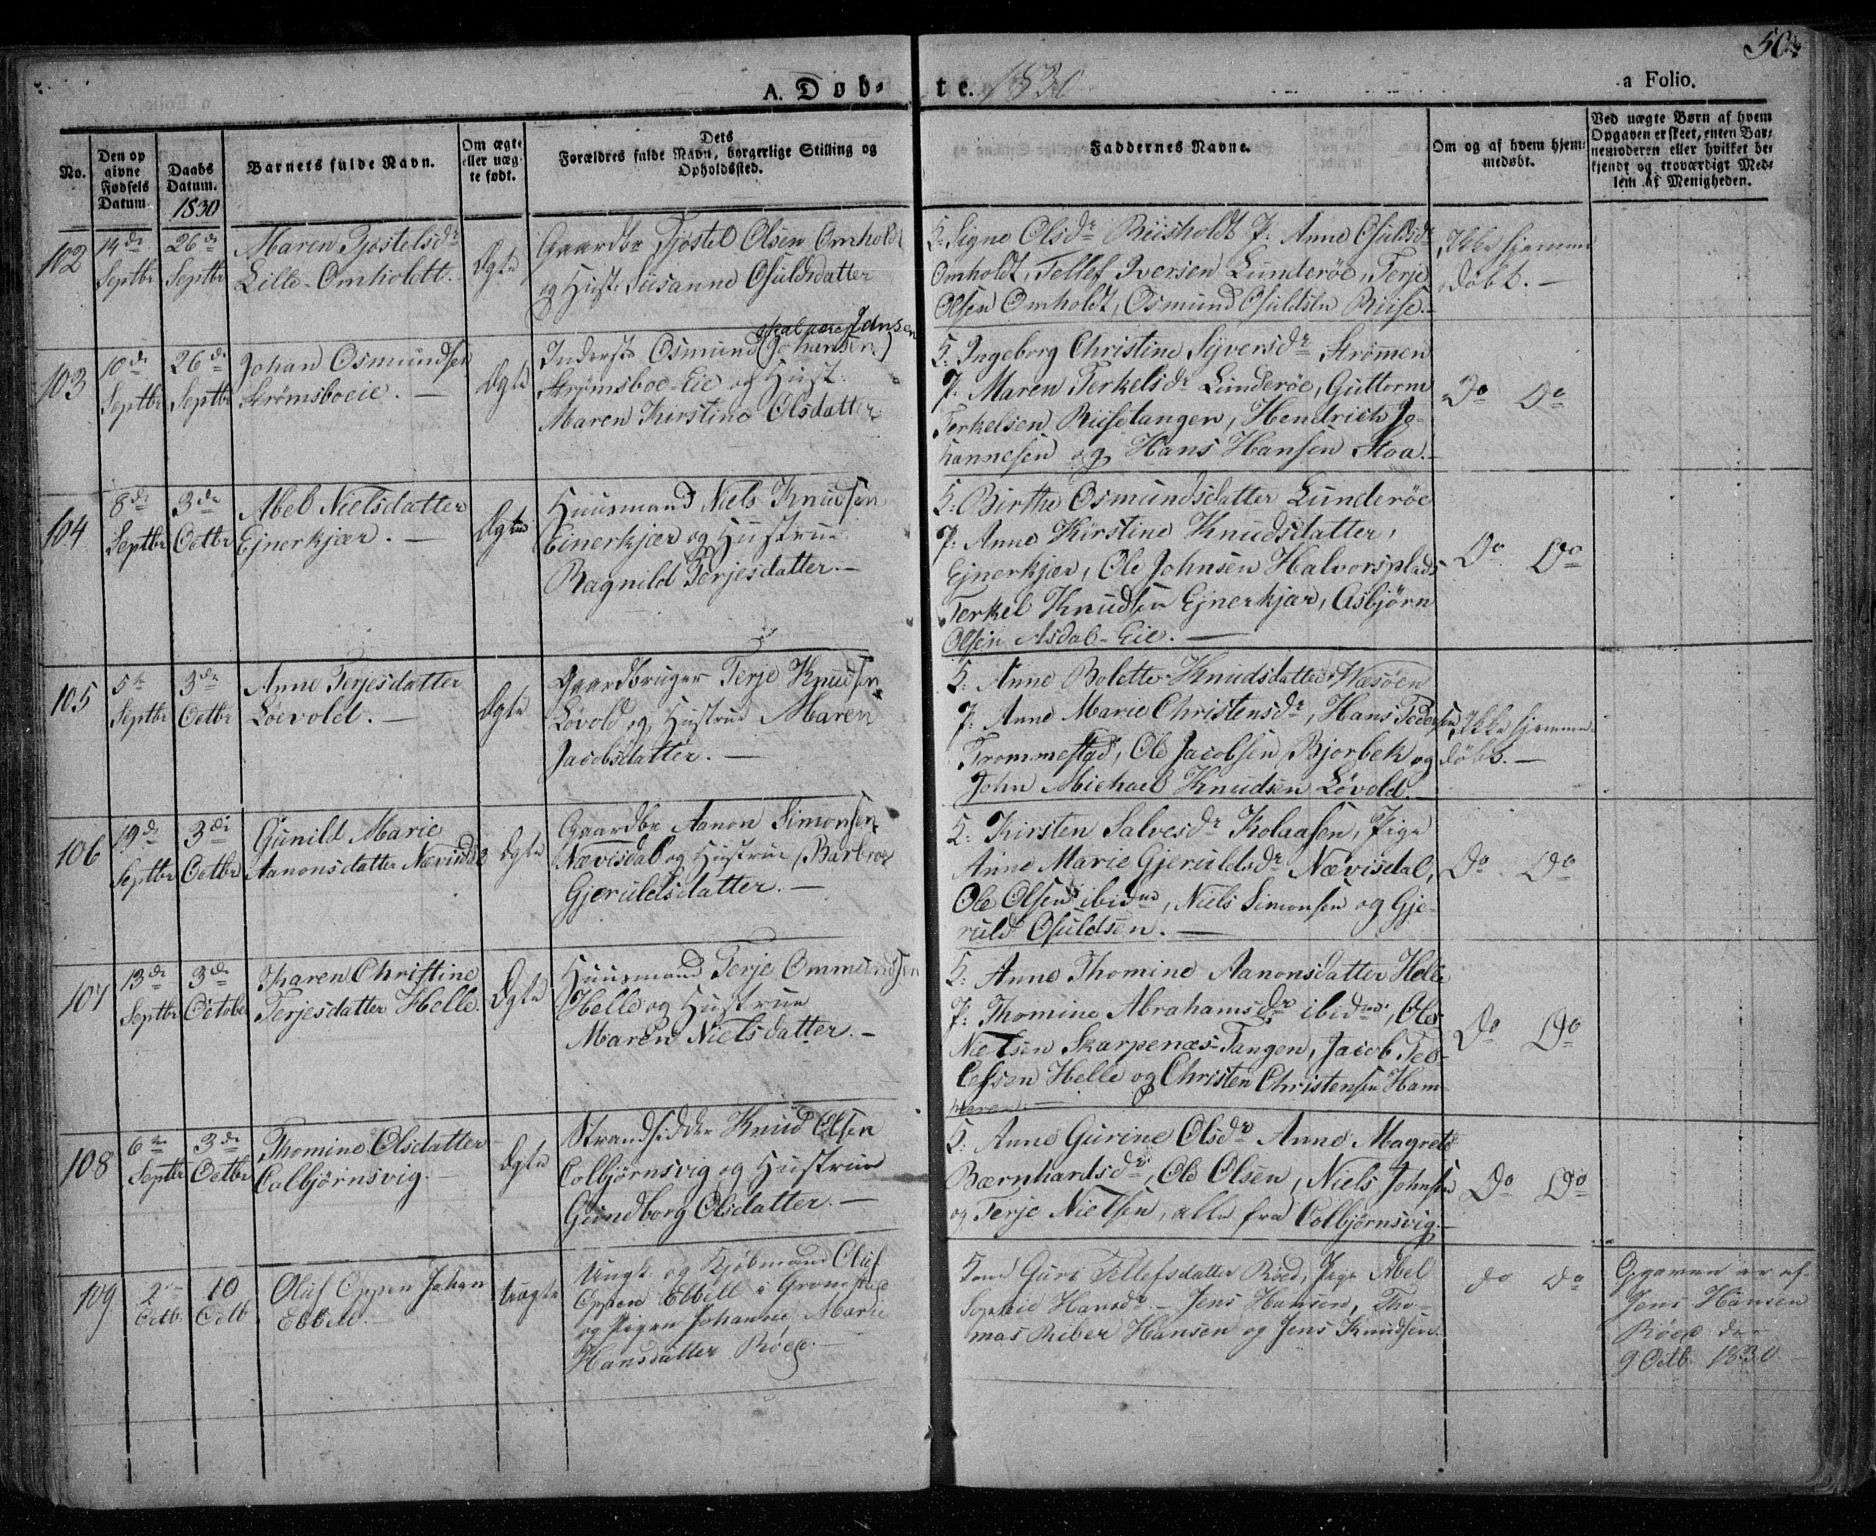 50.
A. Døb-te. 1830
a Folio.
No.
Den op
givne
Fødsels
Datum
Daabs
Datum.
1830
Barnets fulde Navn.
Om ægte
eller uæg-
te født.
Dets
Forældres fulde Navn, borgerlige Stilling og
Opholdssted.
Faddernes Navne.
Om og af hvem hjem-
medøbt.
Ved uægte Børn af hvem
Opgaven er skeet, enten Bar-
nemoderen eller hvilket be-
kjendt og troværdigt Med-
lem af Menigheden.
102
14de
Septbr
26de
Septbr
Maren Tjøstelsdr
Lille-Omholdt.
Ægte
Gaardbr Tjøstel Olsen Omholdt
og Hust. Susanne Osuldsdatter
K: Signe Olsdr Biisholdt P: Anne Osuldsdr
Omholdt, Tellef Iversen Lunderøe, Terje
Olsen Omholdt, Osmund Osuldsen Biise.
Ikke hjemme
døbt. —
103
10de
Septbr
26de
Septbr
Johan Osmundsen
Strømsboeie. —
Ægte
skal være Jansen
Inderst Osmund (Johansen)
Strømsboe-Eie og Hust.
Maren Kirstine Olsdatter
K: Ingeborg Christine Syversdr Strømmen
P: Maren Terkelsdr Lunderøe, Guttorm
Terkelsen Biisetangen, Hendrich Jo-
hannesen og Hans Hansen Stoa.
Do Do
104
8de
Septbr
3de
Octbr
Abel Nielsdatter
Ejnerkjær. —
Ægte
Huusmand Niels Knudsen
Einerkjær og Hustrue
Ragnild Terjesdatter. —
K: Birthe Osmundsdatter Lunderøe
P: Anne Kirstine Knudsdatter,
Ejnerkjær, Ole Johnsen Halvorsplads
Terkel Knudsen Ejnerkjær, Asbjørn
Olsen Asdal-Eie. —
Do Do
105
5te
Septbr
3de
Octbr
Anne Terjesdatter
Løevold. —
Ægte
Gaardbruger Terje Knudsen
Løvold og Hustrue Maren
Jacobsdatter. —
K: Anne Bolette Knudsdatter Næsøen
P: Anne Marie Christensdr, Hans Pedersen
Trommestad, Ole Jacobsen Bjorbek og
John Michael Knudsen Løvold.
Ikke hjemme
døbt. —
106
19de
Septbr
3de
Octbr
Gunild Marie
Aanonsdatter Nævisdal
Ægte
Gaardbr Aanon Simonsen
Nævisdal og Hustrue Barbroe
Gjeruldsdatter. —
K: Kirsten Salvesdr Kolaasen, Pige
Anne Marie Gjeruldsdr Nævisdal,
Ole Olsen ibidm, Niels Simonsen og Gje-
ruld Osuldsen. —
Do Do
107
13de
Septbr
3de
October
Karen Christine
Terjesdatter Helle.
Ægte
Huusmand Terje Ommundsen
Helle og Hustrue
Maren Nielsdatter. —
K: Anne Thomine Aanonsdatter Helle
P: Thomine Abrahamsdr ibidm, Ole
Nielsen Skarpenæs-Tangen, Jacob Tel-
lefsen Helle og Christen Christensen Ham-
meren. —
Do Do
108
6te
Septbr
3de
Octbr
Thomine Olsdatter
Colbjørnsvig. —
Ægte
Strandsidder Knud Olsen
Colbjørnsvig og Hustrue
Gundborg Olsdatter. —
K: Anne Gurine Olsdr Anne Magrete
Bærnhardsdr, Ole Olsen, Niels Johnsen
og Terje Nielsen, alle fra Colbjørnsvig.
Do Do
109
2
Octb.
10
Octb
Oluf Eppen Johan
Ebbell. —
Uægte
Ungk. og Kjøbmand Oluf
Eppen Ebbell i Gromstad
og Pigen Johanne Marie
Hansdatter Røed. —
Kone Guri Tellefsdatter Røed, Pige Abel
Sophie Hansdr — Jens Hansen, Tho-
mas Riber Hansen og Jens Knudsen.
do do
Opgaven er af
Jens Hansen
Røed den
9 Octb. 1830.